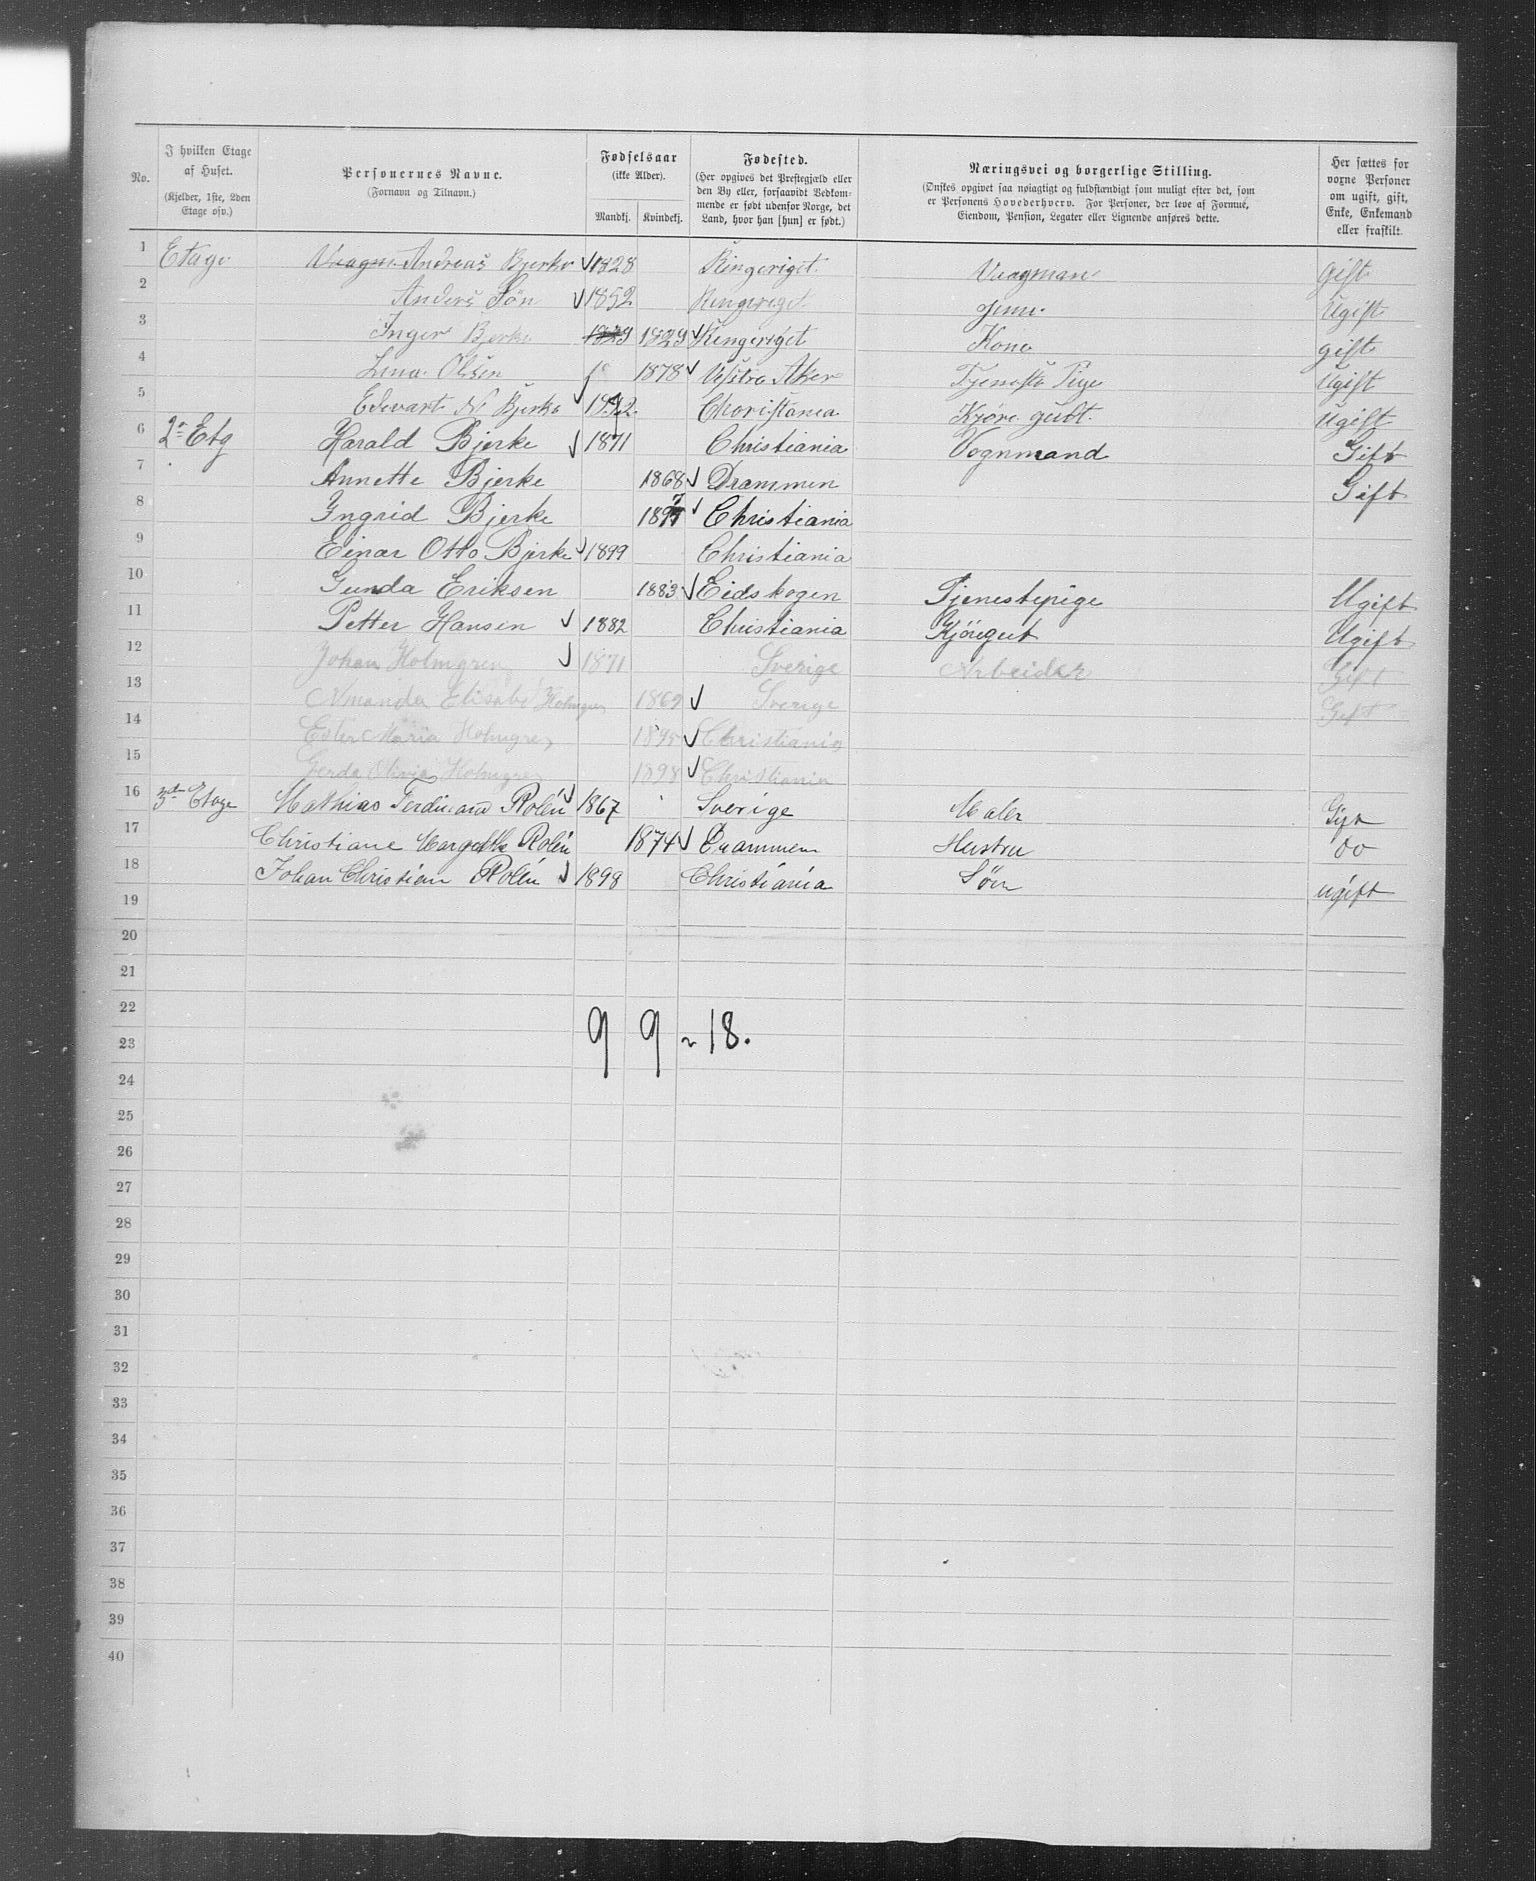 No. | I hvilken Etage af Huset. (Kjelder, 1ste, 2den Etage osv.) | Personernes Navne. (Fornavn og Tilnavn.) | Fødselsaar (ikke Alder). Mandkj. | Kvindekj. | Fødested. (Her opgives det Prestegjæld eller den By eller, forsaavidt Vedkommende er født udenfor Norge, det Land, hvor han [hun] er født.) | Næringsvei og borgerlige Stilling. (Ønskes opgivet saa nøiagtigt og fuldstændigt som muligt efter det, som er Personens Hovederhverv. For Personer, der leve af Formue, Eiendom, Pension, Legater eller Lignende anføres dette. | Her sættes for voxne Personer om ugift, gift, Enke, Enkemand eller fraskilt.
1 Etage Andreas Bjerke 1828 Ringeriget Vaagman gift
2 Anders Søn 1852 Ringeriget Ugift
3 Inger Bjerke 1829 1829 Ringeriget Kone gift
4 Lina Olsen 1878 Vestre Aker Tjeneste Pige Ugift
5 Edevart N Bjerke Christania Kjøre gutt Ugift
6 2n Etg Harald Bjerke 1871 Christiania Vognmand Gift
7 Annette Bjerke 1868 Drammen Gift
8 Ingrid Bjerke 1897 Christiania
9 Einar Otto Bjerke 1899 Christiania
10 Gunda Eriksen 1883 Eidskogen Tjenestepige Ugift
11 Petter Hansen 1882 Christiania Kjöregut Ugift
12 Johan Holmgren 1871 Sverige Arbeider Gift
13 Amanda Elisabe Holmgren 1869 Sverige Gift
14 Ester Maria Holmgren 1895 Christiania
15 Gerda Olivia Holmgren 1898 Christiania
16 3d Etage Mathias Ferdinand Rolén 1867 Sverige Maler Gift
17 Christiane Margethe Rolén 1874 Drammen Hustru do
18 Johan Christian Rolén 1898 Christiania Sön ugift
19
20
21
22
9 9 = 18.
23
24
25
26
27
28
29
30
31
32
33
34
35
36
37
38
39
40